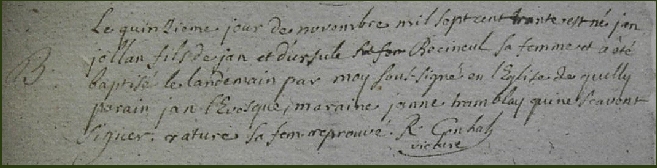 Le quinzieme jour de novembre mil sept cent trante est né jan
B jollan fils de jan et d'ursule sa fem Bocineul sa femme et a été
baptisé le landemain par moy sous signé en l'Eglise de quilly
parain jan l'Evesque, maraine janne tramblay qui ne scavent
signer. rature sa fem reprouvé. R
victire